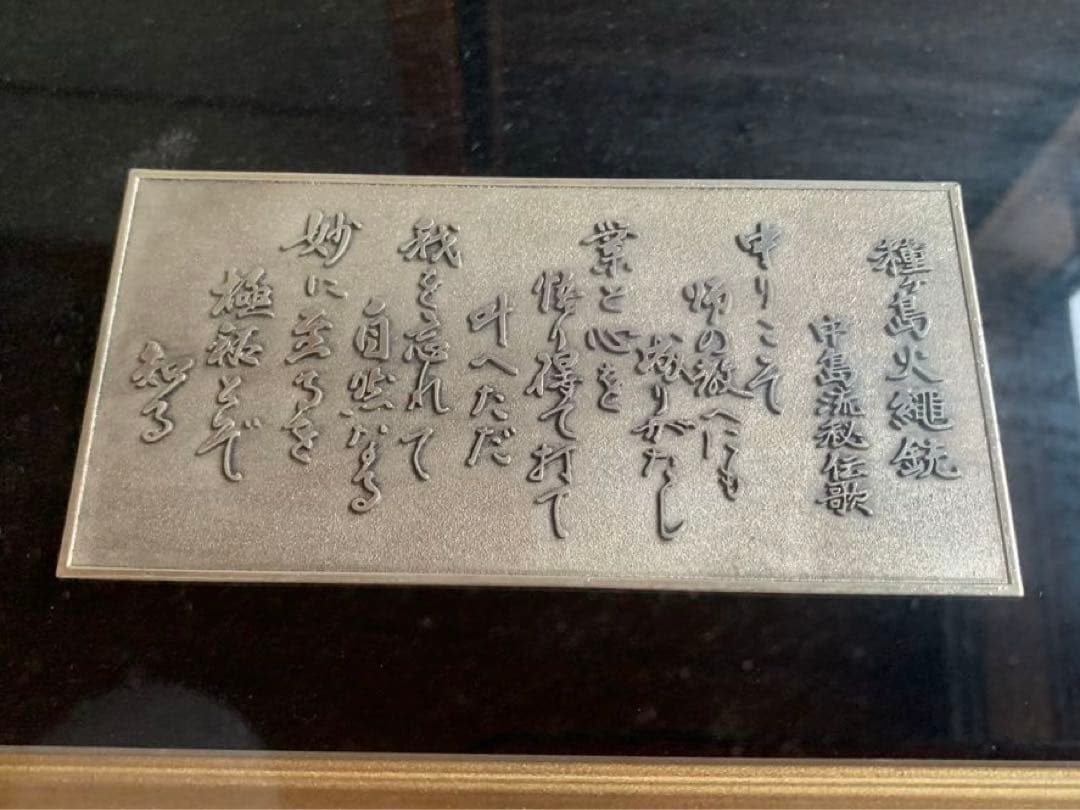 種ヶ島火縄銃
中島流秘伝歌
中りこそ
師の教へにも
成りがたし
業と心を
悟り得て打て
叶へただ
我を忘れて
自然なる
妙に至るを
極秘とぞ
知る